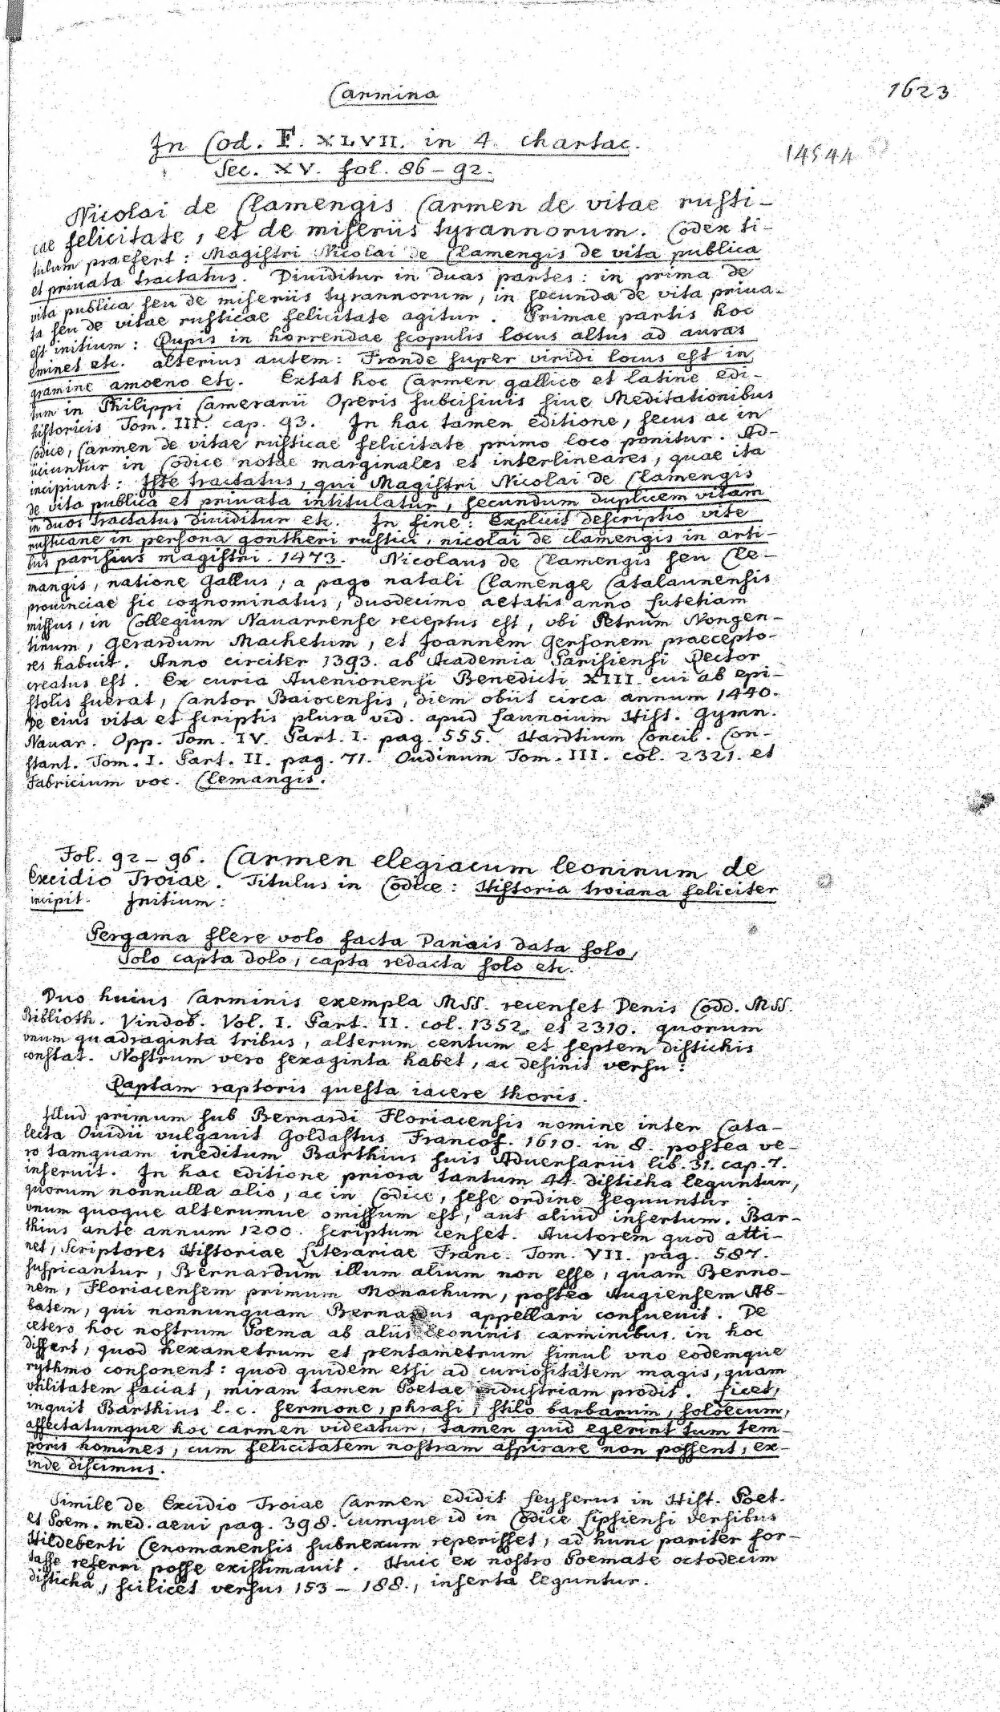 Carmina
1623
In Cod. F. XLVII. in 4. chartac.
14544
Sec. XV. fol. 86-92.
Nicolai de Clamengis Carmen de vitae rusti-
cae felicitate, et de miseriis tyrannorum. Codex ti-
tulum praefert: Magistri Nicolai de Clamengis de vita publica
et privata tractatus. Diuiditur in duas partes: in prima de
vita publica seu de miseriis tyrannorum, in secunda de vita priua-
ta seu de vitae rusticae felicitate agitur. Primae partis hoc
est initium: Rupis in horrendae scopulis locus altus ad auras
eminet etc. alterius autem: Fronde super viridi locus est in
gramine amoeno etc. Extat hoc Carmen gallice et latine edi-
tum in Philippi Camerarii Operis subcisiuis siue Meditationibus
historicis Tom. III. cap. 93. In hac tamen editione, secus ac in
Codice, Carmen de vitae rusticae felicitate primo loco ponitur. Ad-
iiciuntur in Codice notae marginales et interlineares, quae ita
incipiunt: Iste tractatus, qui Magistri Nicolai de Clamengis
de vita publica et privata intitulatur, secundum duplicem vitam
in duos tractatus diuiditur etc. In fine: Explicit descriptio vite
rusticane in persona gontheri rustici, nicolai de clamengis in arti-
bus parisius magistri. 1473. Nicolaus de Clamengis seu Cle-
mangis, natione Gallus, a pago natali Clamenge Catalaunensis
prouinciae sic cognominatus, duodecimo aetatis anno Lutetiam
missus, in Collegium Nauarrense receptus est, vbi Petrum Nongen-
tinum, Gerardum Machetum, et Joannem Gersonem praecepto-
res habuit. Anno circiter 1393. ab Academia Parisiensi Rector
creatus est. Ex curia Auenionensi Benedicti XIII. cui ab epi-
stolis fuerat, Cantor Baiocensis, diem obiit circa annum 1440.
De eius vita et scriptis plura vid. apud Launoium Hist. Gymn.
Nauar. Opp. Tom. IV. Part. I. pag. 555. Hardtium Concil. Con-
stant. Tom. I. Part. II. pag. 71. Oudinum Tom. III. col. 2321. et
Fabricium voc. Clemangis.
Fol. 92-96. Carmen elegiacum leoninum de
Excidio Troiae. Titulus in Codice: Historia troiana feliciter
incipit. Initium:
Pergama flere volo facta Danais data solo,
Solo capta dolo, capta redacta solo etc.
Duo huius Carminis exempla MSS. recenset Denis Codd. MSS.
Biblioth. Vindob. Vol. I. Part. II. col. 1352. et 2310. quorum
vnum quadraginta tribus, alterum centum et septem distichis
constat. Nostrum vero sexaginta habet, ac desinit versu:
Raptam raptoris questa iacere thoris.
Illud primum sub Bernardi Floriacensis nomine inter Cata-
lecta Ouidii vulgauit Goldastus Francof. 1610. in 8. postea ve-
ro tamquam ineditum Barthius suis Aduersariis lib. 31. cap. 7.
inseruit. In hac editione priora tantum 44. disticha leguntur,
quorum nonnulla alio, ac in Codice, sese ordine sequuntur:
vnum quoque alterumue omissum est, aut aliud insertum. Bar-
thius ante annum 1200. scriptum censet. Auctorem quod atti-
net, Scriptores Historiae Literariae Franc. Tom. VII. pag. 587.
suspicantur, Bernardum illum alium non esse, quam Berno-
nem, Floriacensem primum Monachum, postea Augiensem Ab-
batem, qui nonnunquam Bernardus appellari consueuit. De
cetero hoc nostrum Poema ab aliis leoninis carminibus in hoc
differt, quod hexametrum et pentametrum simul vno eodemque
rythmo consonent: quod quidem etsi ad curiositatem magis, quam
vtilitatem faciat, miram tamen Poetae industriam prodit. Licet,
inquit Barthius l. c. sermone, phrasi, stilo barbarum, soloecum,
affectatumque hoc carmen videatur, tamen quid egerint tum tem-
poris homines, cum felicitatem nostram aspirare non possent, ex-
inde discimus.
Simile de Excidio Troiae Carmen edidit Leyserus in Hist. Poet.
et Poem. med. aeui pag. 398. cumque id in Codice Lipsiensi versibus
Hildeberti Cenomanensis subnexum reperisset, ad hunc pariter for-
tasse referri posse existimauit. Huic ex nostro Poemate octodecim
disticha, scilicet versus 153-188., inserta leguntur.